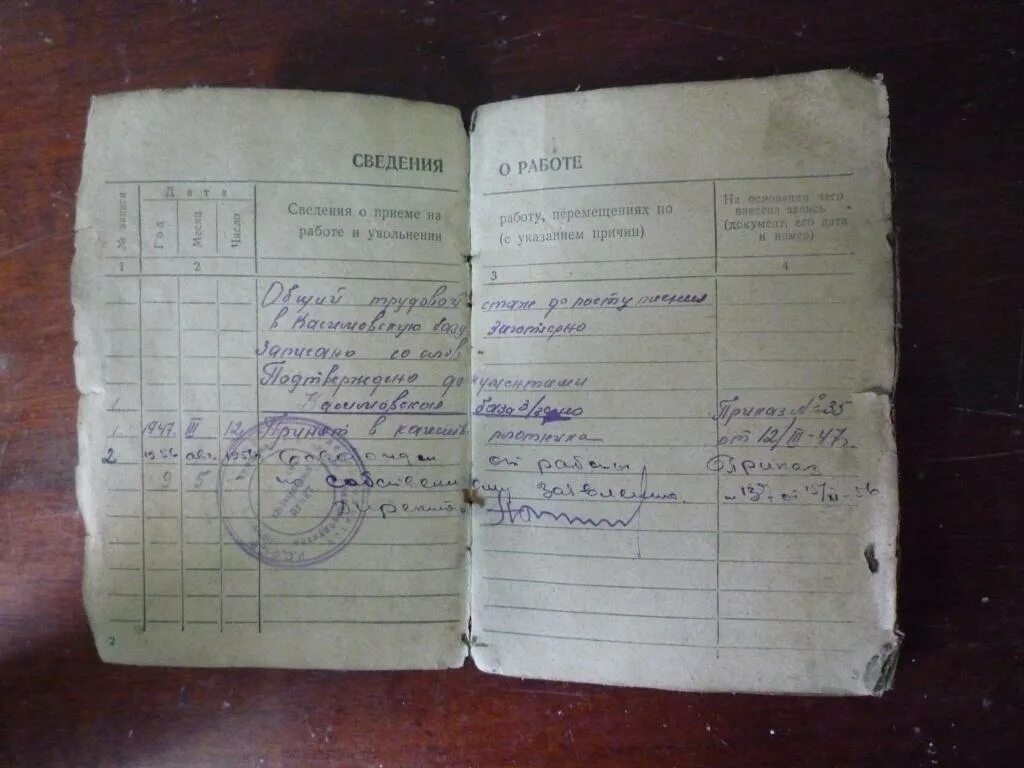 СВЕДЕНИЯ О РАБОТЕ
№ записи
Дата
Год
Месяц
Число
Сведения о приеме на работу, перемещениях по
работе и увольнении (с указанием причин)
На основании чего
внесена запись
(документ, его дата
и номер)
1 2 3 4
Общий трудовой стаж до поступления
в Касимовскую базу Заготзерно
Записано со слов -
Подтверждено документами
Касимовская база З/зерно Приказ № 35
1 1947 III 12 Принят в качеств плотника от 12/III-47г.
2 1956 авг. Освобожден от работы Приказ
по собственному заявлению. от -56
Директор
2
3